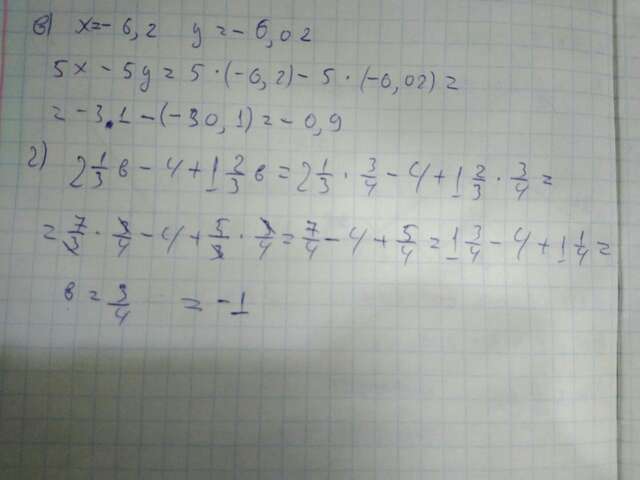 в) x=-6,2 y=-6,02
5x-5y=5·(-6,2)-5·(-6,02)=
=-3.1-(-30,1)=-0,9
г) 2 1/3 в - 4 + 1 2/3 в = 2 1/3 · 3/4 - 4 + 1 2/3 · 3/4 =
= 7/3 · 3/4 - 4 + 5/3 · 3/4 = 7/4 - 4 + 5/4 = 1 3/4 - 4 + 1 1/4 =
в = 3/4 = -1